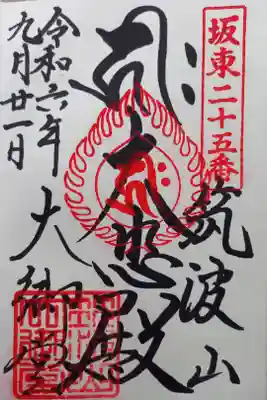 坂東二十五番
筑波山
大悲殿
大御堂
令和六年
九月廿一日